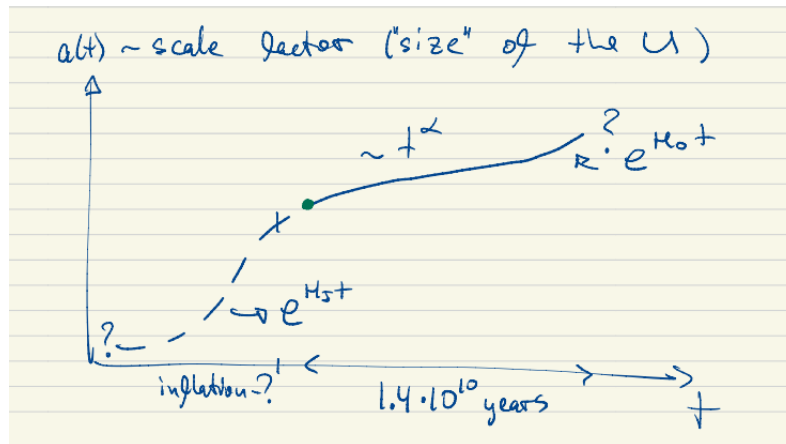 a(t) ~ scale factor ("size" of the U)
~ t^α
?
e^{H₀t}
e^{H_I t}
?
inflation-?
1.4·10^{10} years
t